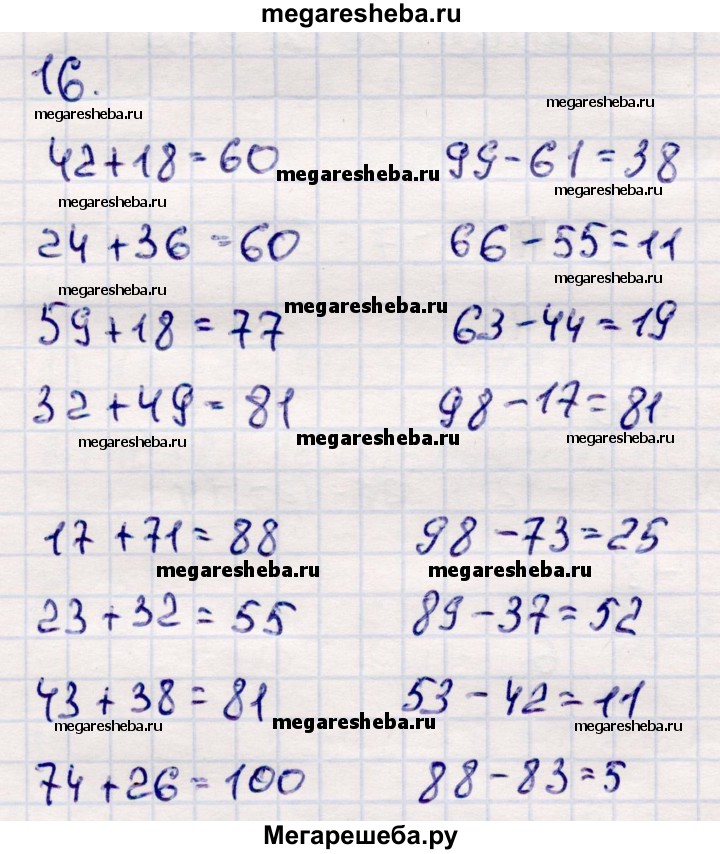 megaresheba.ru
16.
megaresheba.ru megaresheba.ru
42+18=60 99-61=38
megaresheba.ru megaresheba.ru
megaresheba.ru
24+36=60 66-55=11
megaresheba.ru megaresheba.ru
megaresheba.ru
59+18=77 63-44=19
32+49=81 98-17=81
megaresheba.ru megaresheba.ru megaresheba.ru
17+71=88 98-73=25
megaresheba.ru megaresheba.ru
23+32=55 89-37=52
43+38=81 53-42=11
megaresheba.ru megaresheba.ru megaresheba.ru
74+26=100 88-83=5
Мегарешеба.ру